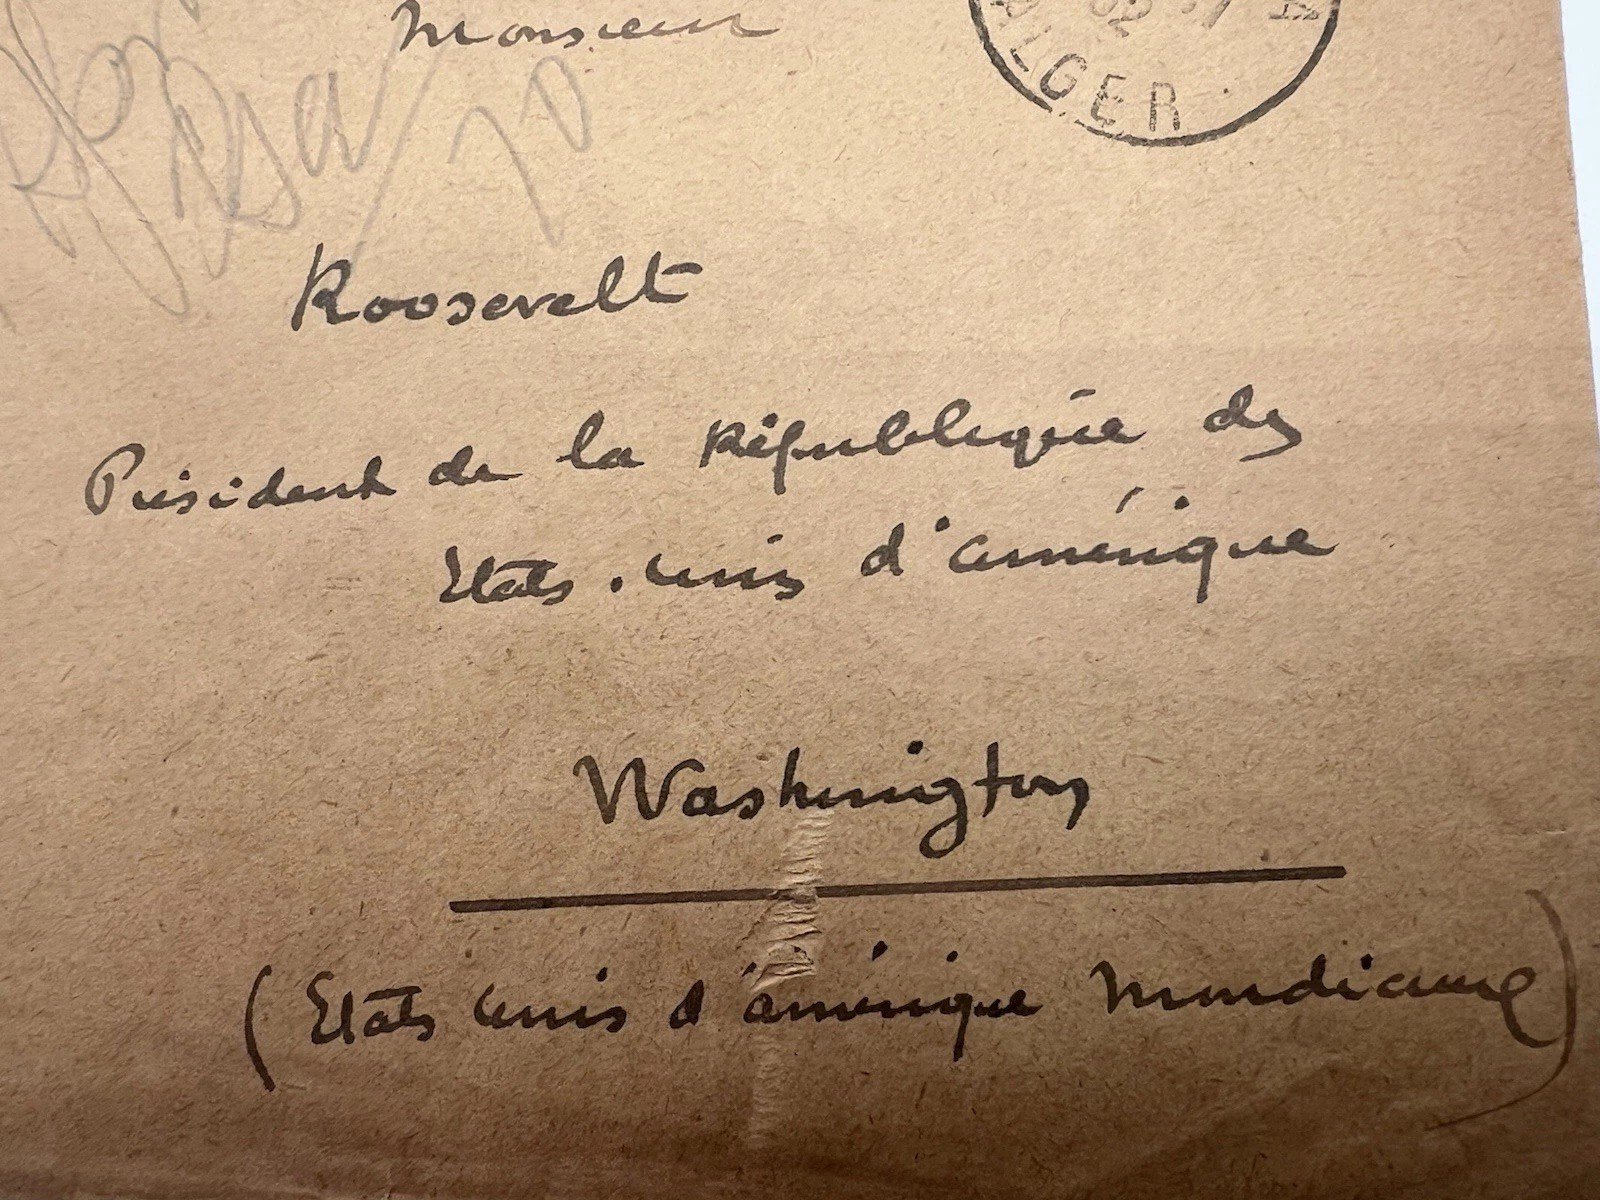 Monsieur
ALGER
Roosevelt
Président de la République des
Etats-unis d'amérique
Washington
(Etats unis d'amérique